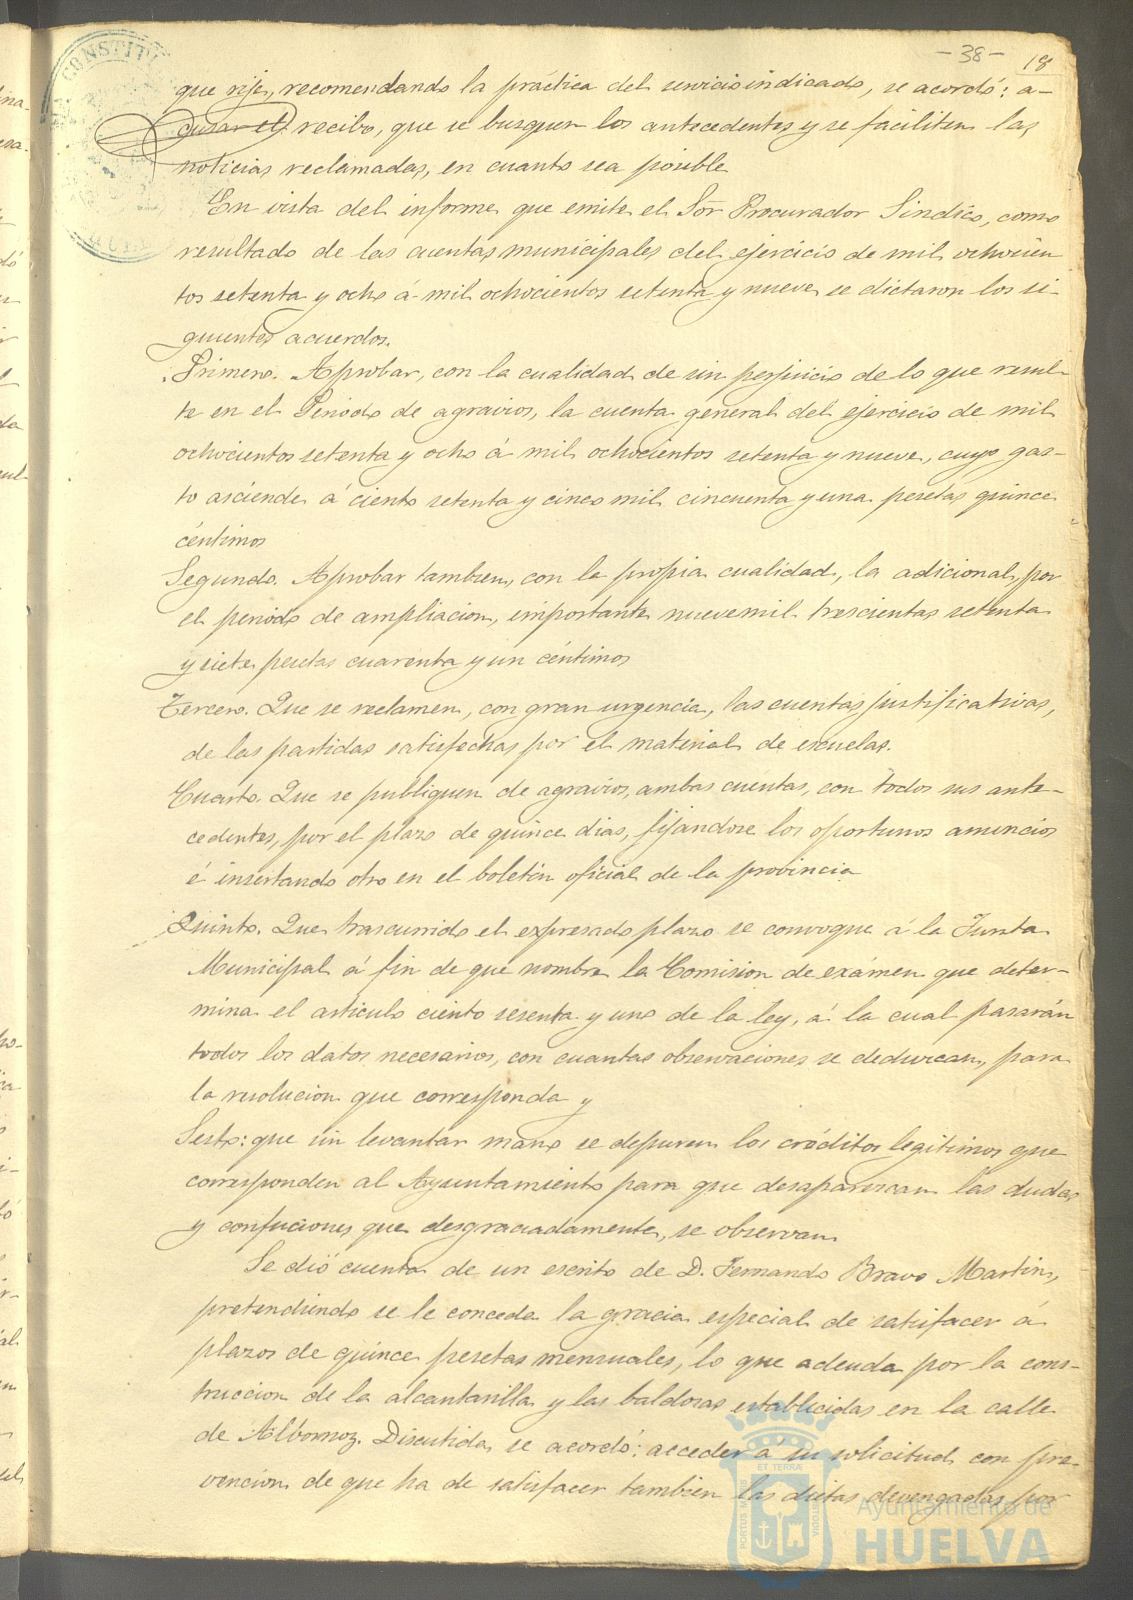 - 38 -
18
CONSTITU
que rije, recomendando la práctica del servicio indicado, se acordó: a-
cusar el recibo, que se busquen los antecedentes y se faciliten las
noticias reclamadas, en cuanto sea posible
En vista del informe que emite el Sor Procurador Sindico, como
resultado de las cuentas municipales del ejercicio de mil ochocien
tos setenta y ocho á mil ochocientos setenta y nueve se dictaron los si-
guientes acuerdos.
Primero. Aprobar, con la cualidad de sin perjuicio de lo que resul-
te en el Periodo de agravios, la cuenta general del ejercicio de mil
ochocientos setenta y ocho á mil ochocientos setenta y nueve, cuyo gas-
to asciende á ciento setenta y cinco mil cincuenta y una pesetas quince
céntimos
Segundo. Aprobar tambien, con la propia cualidad, la adicional, por
el periodo de ampliacion, importante nueve mil trescientas setenta
y siete pesetas cuarenta y un céntimos
Tercero. Que se reclamen, con gran urgencia, las cuentas justificativas,
de las partidas satisfechas por el material de escuelas.
Cuarto. Que se publiquen de agravios, ambas cuentas, con todos sus ante-
cedentes, por el plazo de quince dias, fijándose los oportunos anuncios
é insertando otro en el boletin oficial de la provincia
Quinto. Que trascurrido el expresado plazo se convoque á la Junta
Municipal á fin de que nombre la Comision de exámen que deter-
mina el articulo ciento sesenta y uno de la ley, á la cual pasarán
todos los datos necesarios, con cuantas observaciones se deduzcan, para
la resolucion que corresponda y
Sesto: que sin levantar mano se depuren los créditos legitimos que
corresponden al Ayuntamiento para que desaparezcan las dudas
y confuciones que desgraciadamente, se observan
Se dió cuenta de un escrito de D. Fernando Bravo Martin,
pretendiendo se le conceda la gracia especial de satisfacer á
plazos de quince pesetas mensuales, lo que adeuda por la cons-
truccion de la alcantarilla y las baldosas establecidas en la calle
de Albornoz. Discutida se acordó: acceder á su solicitud con pre-
vencion de que ha de satisfacer tambien las dietas devengadas por
ET TERRÆ
PORTUS MARIS
CUSTODIA
Ayuntamiento de
HUELVA